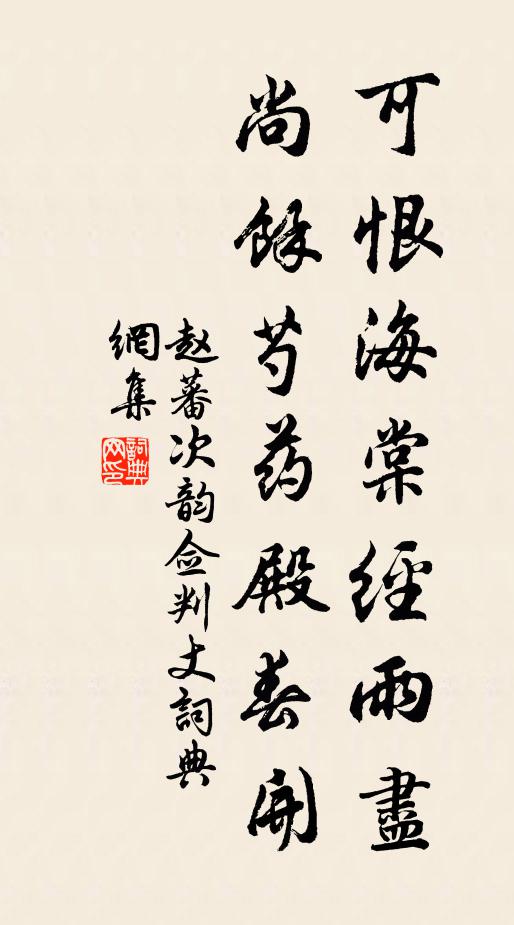 可恨海棠經雨盡
尚餘芍药殿春開
赵蕃次韵佥判丈詞典
網集
詞典
网印